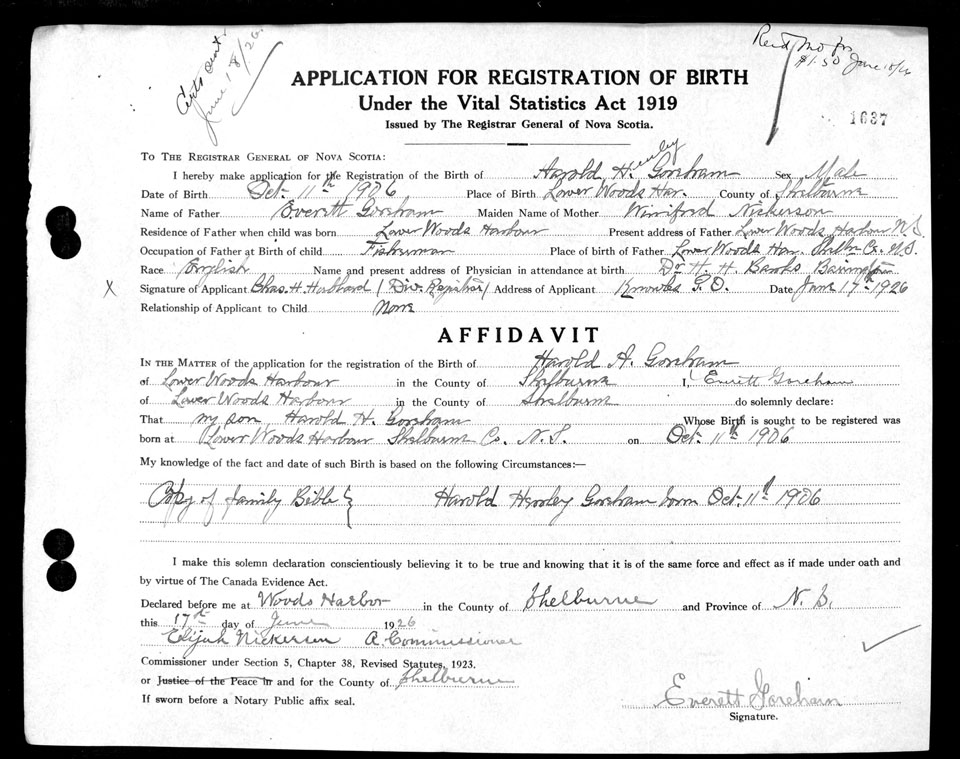 Certs sent
June 18/26.
Recd Mo for
$1.50 June 18/26
1637
APPLICATION FOR REGISTRATION OF BIRTH
Under the Vital Statistics Act 1919
Issued by The Registrar General of Nova Scotia.
TO THE REGISTRAR GENERAL OF NOVA SCOTIA:
I hereby make application for the Registration of the Birth of Harold Henley Goreham Sex Male
Date of Birth Oct. 11th 1906 Place of Birth Lower Woods Har. County of Shelburne
Name of Father Everett Goreham Maiden Name of Mother Winiford Nickerson
Residence of Father when child was born Lower Woods Harbour Present address of Father Lower Woods Harbour N.S.
Occupation of Father at Birth of child Fisherman Place of birth of Father Lower Woods Har. Shelbn Co. N.S.
Race English Name and present address of Physician in attendance at birth Dr. H. H. Banks Barrington
X Signature of Applicant Chas. H. Hubbard (Div. Registrar) Address of Applicant Knowles P.O. Date June 17th 1926
Relationship of Applicant to Child None
AFFIDAVIT
IN THE MATTER of the application for the registration of the Birth of Harold H. Goreham
of Lower Woods Harbour in the County of Shelburne I, Everett Goreham
of Lower Woods Harbour in the County of Shelburne do solemnly declare:
That my son Harold H. Goreham Whose Birth is sought to be registered was
born at Lower Woods Harbour Shelburne Co. N.S. on Oct. 11th 1906
My knowledge of the fact and date of such Birth is based on the following Circumstances:—
Copy of family Bible } Harold Henley Goreham born Oct. 11th 1906
I make this solemn declaration conscientiously believing it to be true and knowing that it is of the same force and effect as if made under oath and
by virtue of The Canada Evidence Act.
Declared before me at Woods Harbor in the County of Shelburne and Province of N.S.
this 17th day of June 1926
Elijah Nickerson A Commissioner
Commissioner under Section 5, Chapter 38, Revised Statutes, 1923.
or Justice of the Peace in and for the County of Shelburne
If sworn before a Notary Public affix seal.
Everett Goreham
Signature.